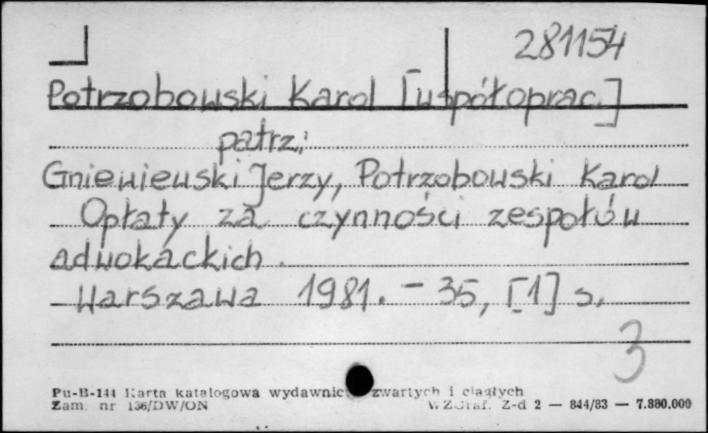 281154
Potrzobowski Karol [współoprac.]
patrz:
Gniewiewski Jerzy, Potrzobowski Karol
Opłaty za czynności zespołów
adwokackich.
Warszawa 1981. - 35, [1] s.
3
Pu-B-144 Karta katalogowa wydawnic zwartych i ciągłych
Zam. nr 136/DW/ON Z-d 2 — 844/83 — 7.880.000